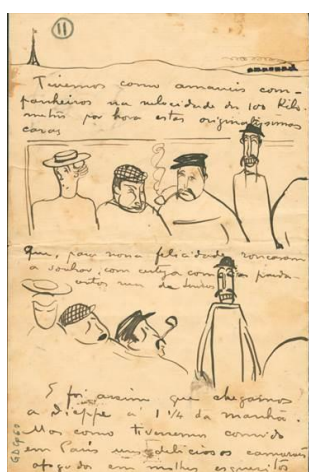 11
Tivemos como amaveis com-
panheiros na velocidade de 100 kilo-
metros por hora estas originalissimas
caras
que, para nossa felicidade roncaram
a sonhar, com certeza com
E foi assim que chegamos
a Dieppe á 1 1/4 da manhã.
Mas como tivessemos comido
em Paris uns deliciosos camarões
afogados em molhos esquesitos